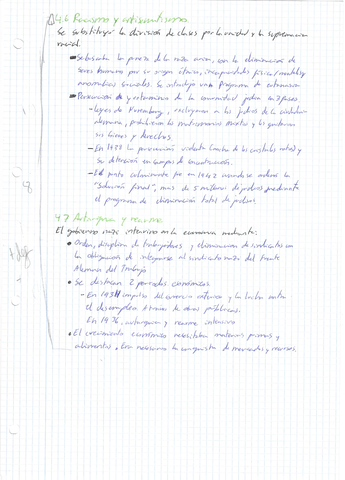 4.6 Racismo y antisemitismo
Se substituyó la división de clases por la unidad y la supremacía
racial.
Se buscaba la pureza de la raza aria, con la eliminación de
seres humanos por su origen étnico, incapacidades físicas/mentales y
anomalías sexuales. Se introdujo un programa de eutanasia
Persecución y exterminio de la comunidad judía en 3 fases
- Leyes de Nuremberg, excluyeron a los judíos de la ciudadanía
alemana, prohibieron los matrimonios mixtos y les quitaron
sus bienes y derechos.
- En 1938 la persecución violenta (noche de los cristales rotos) y
su detención en campos de concentración.
- El punto culminante fue en 1942 cuando se ordenó la
"Solución final", más de 5 millones de judíos mediante
el programa de eliminación total de judíos.
4.7 Autarquía y rearme
El gobierno nazi intervino en la economía mediante:
Orden, disciplina de trabajadores y eliminación de sindicatos con
la obligación de integrarse al sindicato nazi del Frente
Alemán del Trabajo
Se destacan 2 periodos económicos
- En 1934 impulso del comercio exterior y la lucha contra
el desempleo a través de obras públicas.
En 1936, autarquía y rearme intensivo
El crecimiento económico necesitaba materias primas y
alimentos. Era necesaria la conquista de mercados y recursos.